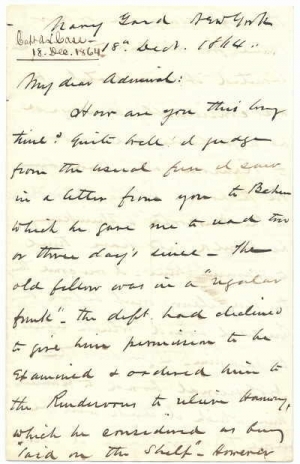 Navy Yard New York
Capt A. L. Case
18. Dec. 1864
18th Dect. 1864.
My dear Admiral:
How are you this long
time? Quite well I judge
from the usual fun I saw
in a letter from you to
which he gave me to read two
or three day's since - The
old fellow was in a "regular
funk" - the dept. had declined
to give him permission to be
Examined & ordered him to
the Rendezvous to relieve
which he considered as being
"laid on the Shelf" - However